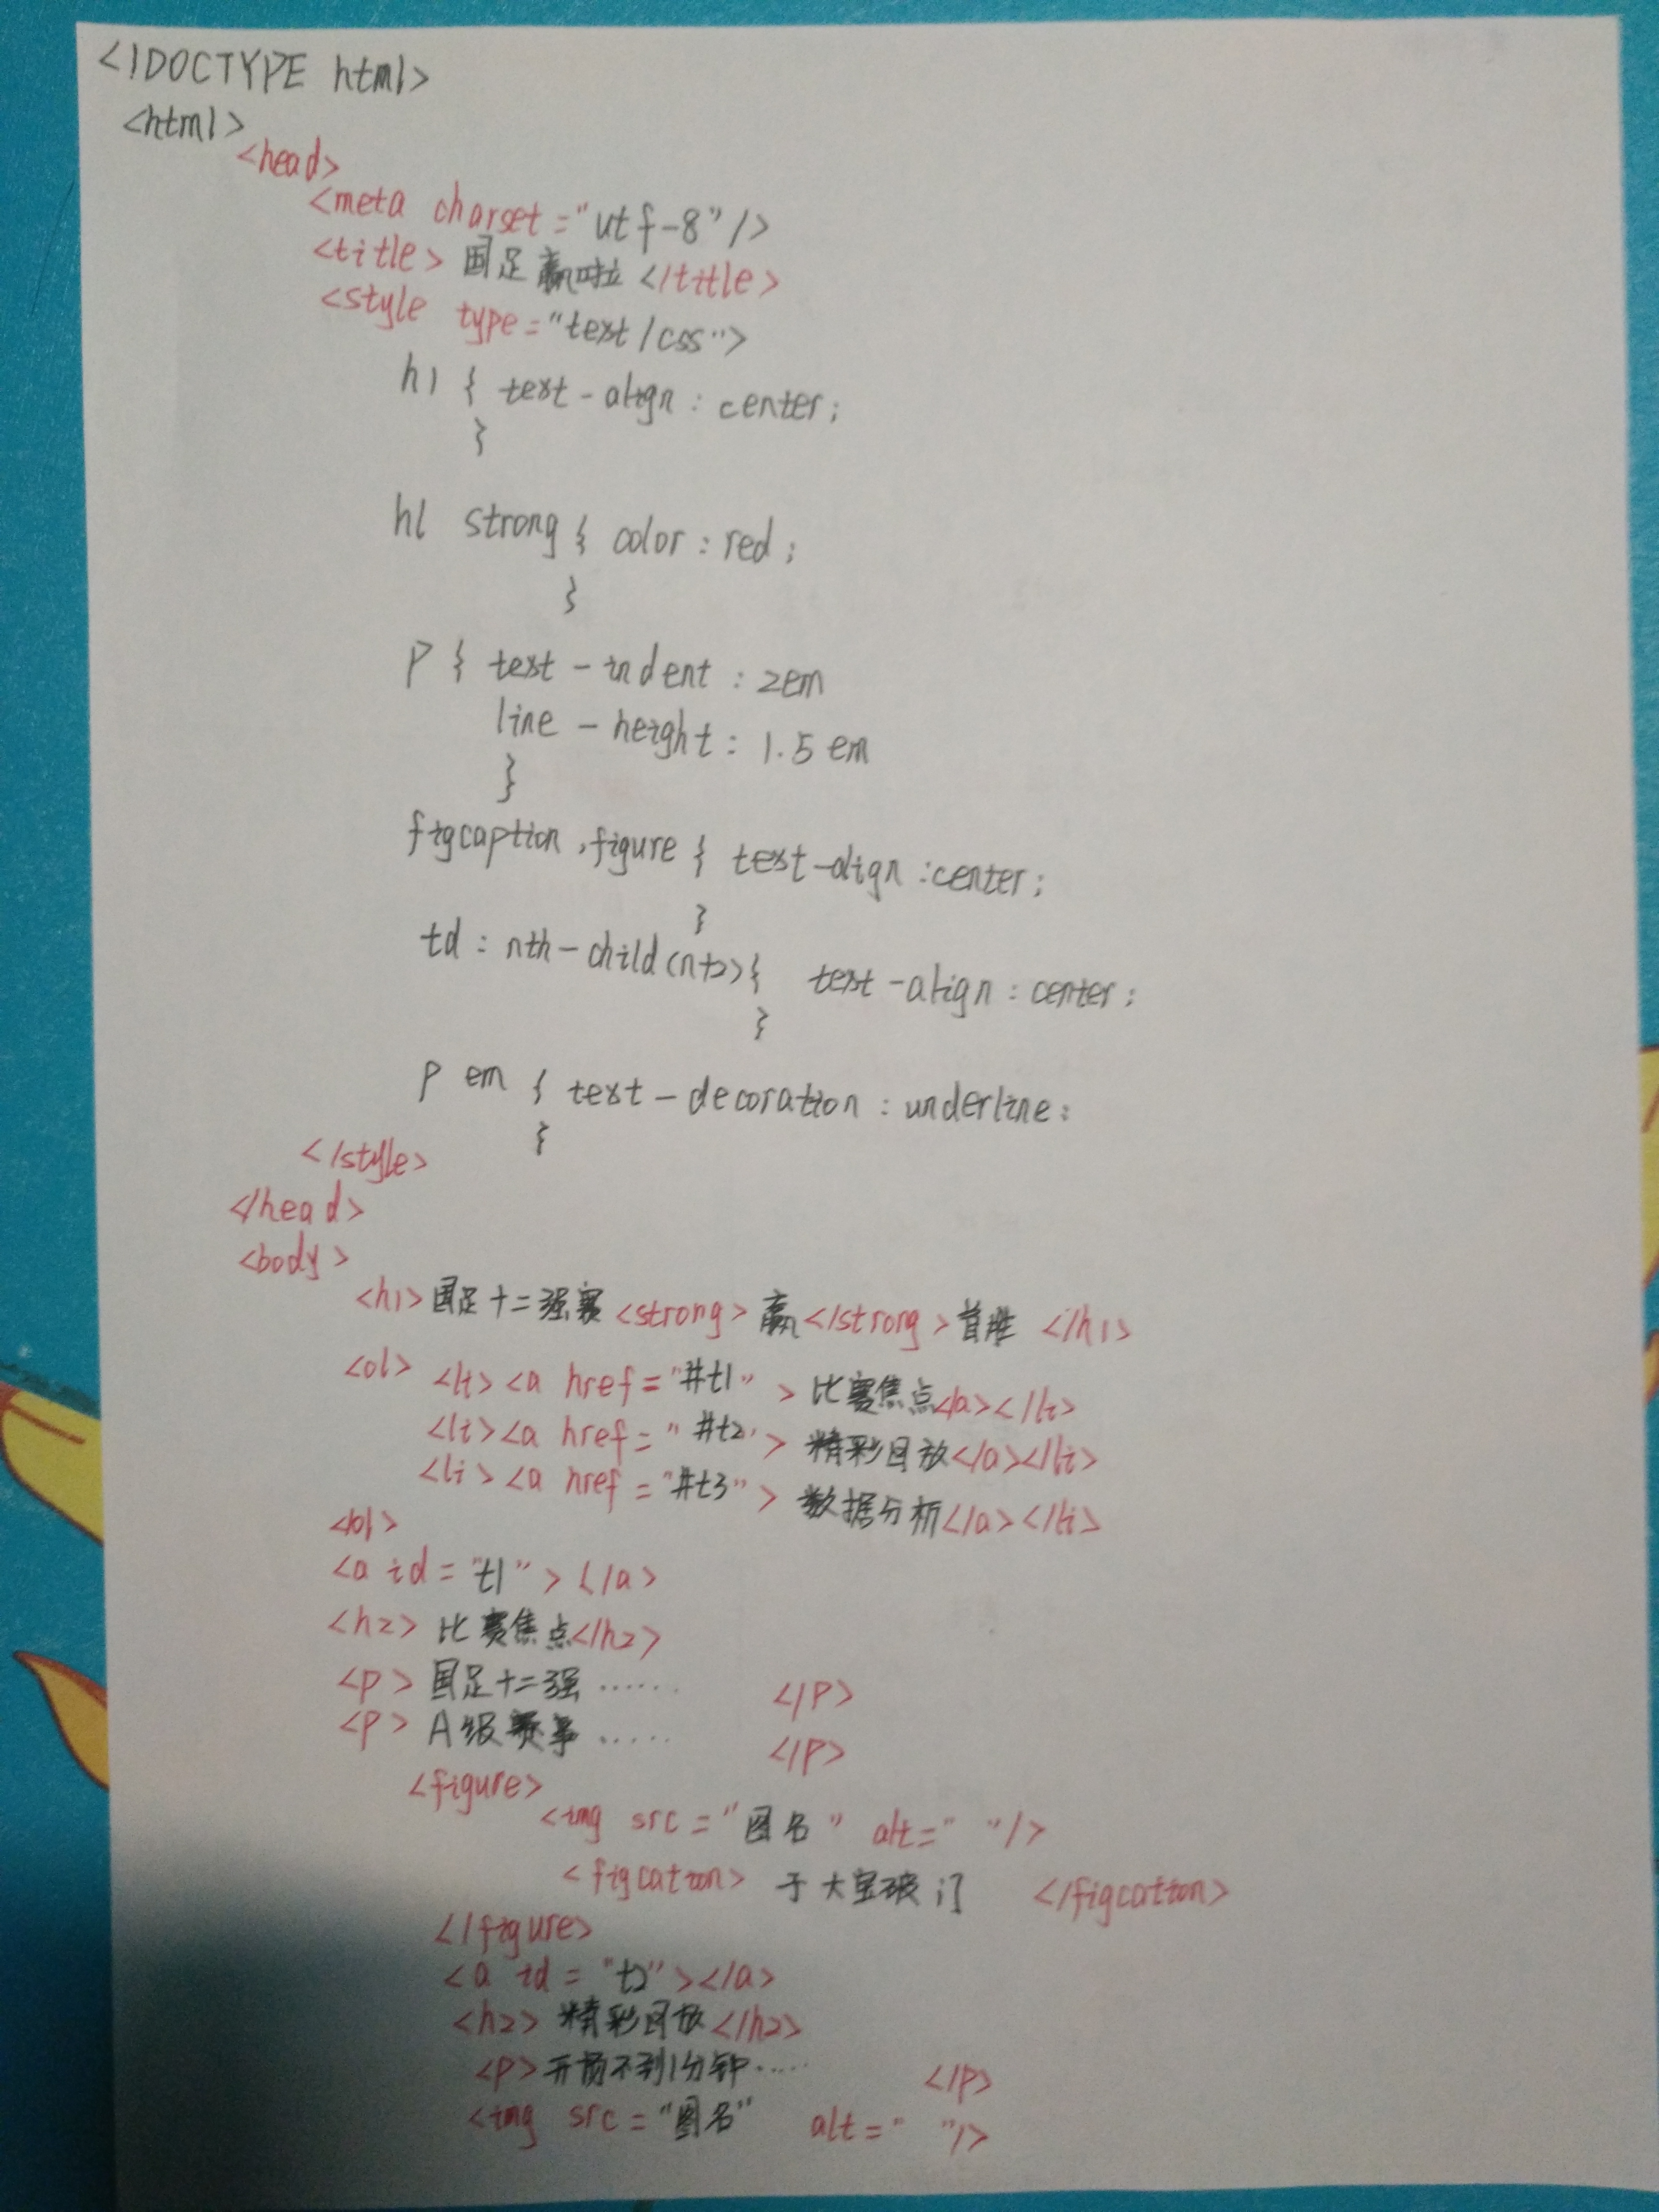 <!DOCTYPE html>
<html>
<head>
<meta charset="utf-8"/>
<title>国足赢啦</title>
<style type="text/css">
h1 { text-align: center;
}
h1 strong { color: red;
}
p { text-indent: 2em
line-height: 1.5em
}
figcaption,figure { text-align:center;
}
td:nth-child(n+2){ text-align: center;
}
p em { text-decoration: underline;
}
</style>
</head>
<body>
<h1>国足十二强赛<strong>赢</strong>首胜 </h1>
<ol> <li><a href="#t1">比赛焦点</a></li>
<li><a href="#t2">精彩回放</a></li>
<li><a href="#t3">数据分析</a></li>
</ol>
<a id="t1"></a>
<h2>比赛焦点</h2>
<p>国足十二强…… </p>
<p>A级赛事…… </p>
<figure>
<img src="图名" alt=" "/>
<figcation>于大宝破门 </figcation>
</figure>
<a id="t2"></a>
<h2>精彩回放</h2>
<p>开场不到1分钟…… </p>
<img src="图名" alt=" "/>